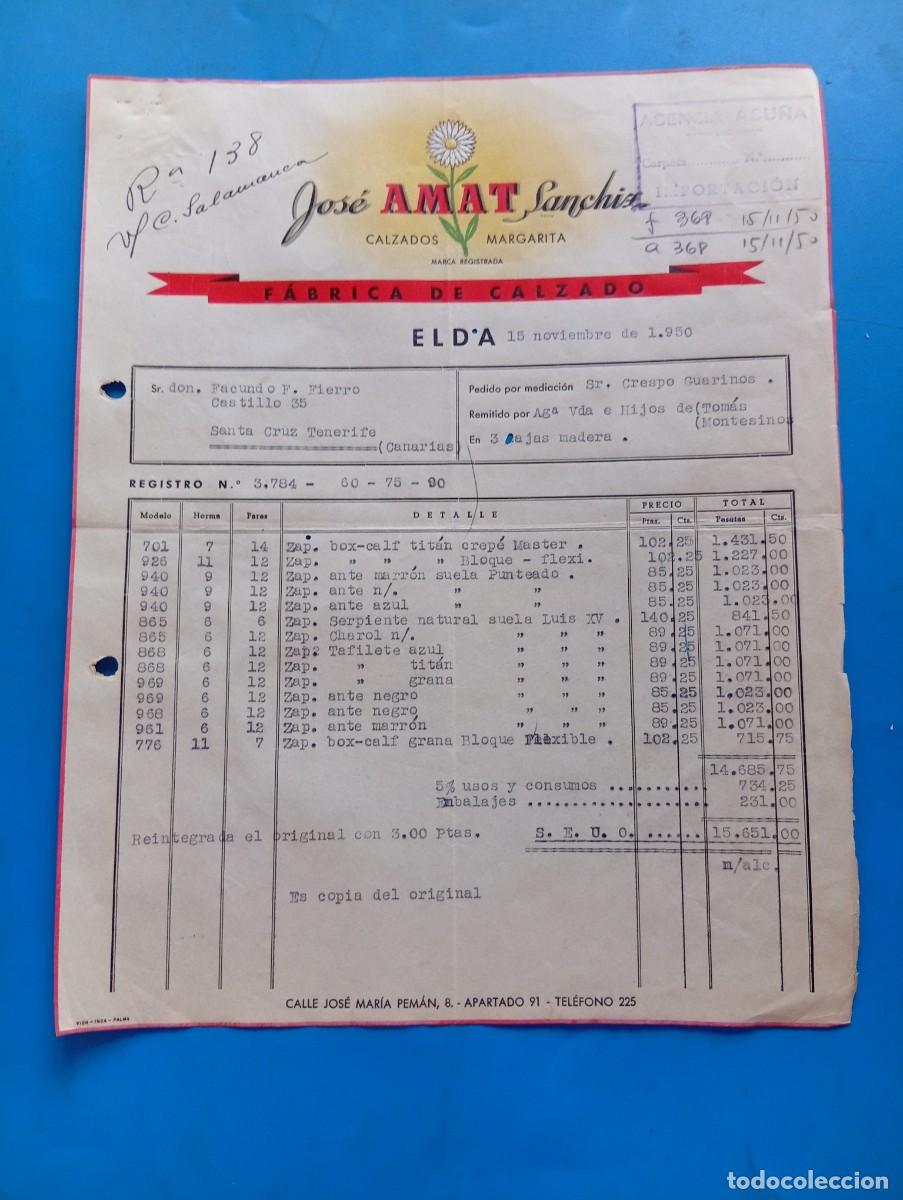 Rª 138
v/ C. Salamanca
AGENCIA ACUÑA
Carpeta.......... N.º..........
IMPORTACIÓN
f 368 15/11/50
a 368 15/11/50
José AMAT Sanchiz
CALZADOS MARGARITA
MARCA REGISTRADA
FÁBRICA DE CALZADO
ELDA 15 noviembre de 1.950
Sr. don. Facundo F. Fierro
Castillo 35
Santa Cruz Tenerife
(Canarias)
Pedido por mediación Sr. Crespo Guarinos .
Remitido por Agª Vda e Hijos de (Tomás
(Montesinos
En 3 cajas madera .
REGISTRO N.º 3.784 - 60 - 75 - 90
Modelo Horma Pares DETALLE PRECIO TOTAL
Ptas. Cts. Pesetas Cts.
701 7 14 Zap. box-calf titán crepé Master . 102.25 1.431.50
926 11 12 Zap. " " " Bloque - flexi. 102.25 1.227.00
940 9 12 Zap. ante marrón suela Punteado . 85.25 1.023.00
940 9 12 Zap. ante n/. " " 85.25 1.023.00
940 9 12 Zap. ante azul " " 85.25 1.023.00
865 6 6 Zap. Serpiente natural suela Luis XV . 140.25 841.50
865 6 12 Zap. Charol n/. " " " 89.25 1.071.00
868 6 12 Zap2 Tafilete azul " " " 89.25 1.071.00
868 6 12 Zap. " titán " " " 89.25 1.071.00
969 6 12 Zap. " grana " " " 89.25 1.071.00
969 6 12 Zap. ante negro " " " 85.25 1.023.00
968 6 12 Zap. ante negro " " " 85.25 1.023.00
961 6 12 Zap. ante marrón " " " 89.25 1.071.00
776 11 7 Zap. box-calf grana Bloque Flexible . 102.25 715.75
14.685.75
5% usos y consumos ........... 734.25
Embalajes .................... 231.00
Reintegrada el original con 3.00 Ptas. S. E. U. O. ...... 15.651.00
n/alc.
Es copia del original
CALLE JOSÉ MARÍA PEMÁN, 8. - APARTADO 91 - TELÉFONO 225
todocoleccion